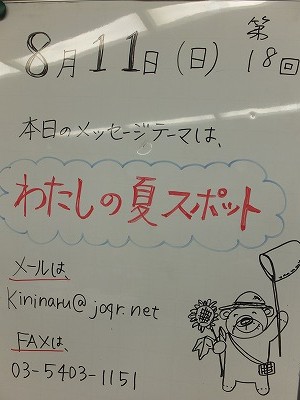 8月11日(日) 第18回
本日のメッセージテーマは、
わたしの夏スポット
メールは、
Kininaru@joqr.net
FAXは、
03-5403-1151